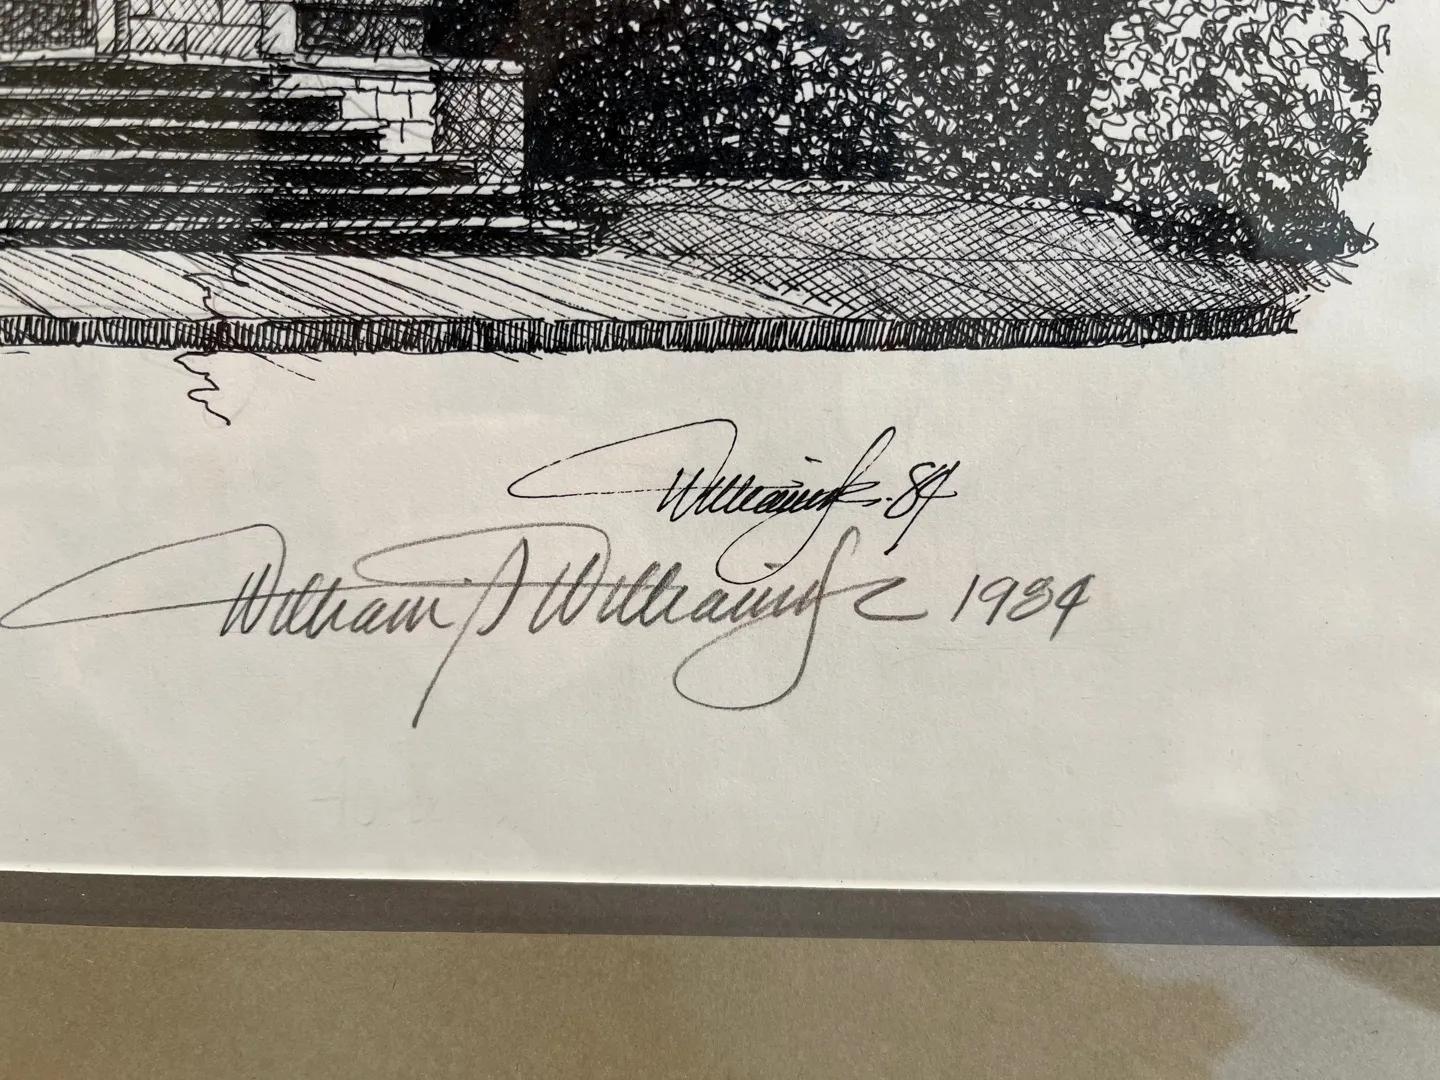 Williams. 84
William J Williams 1984